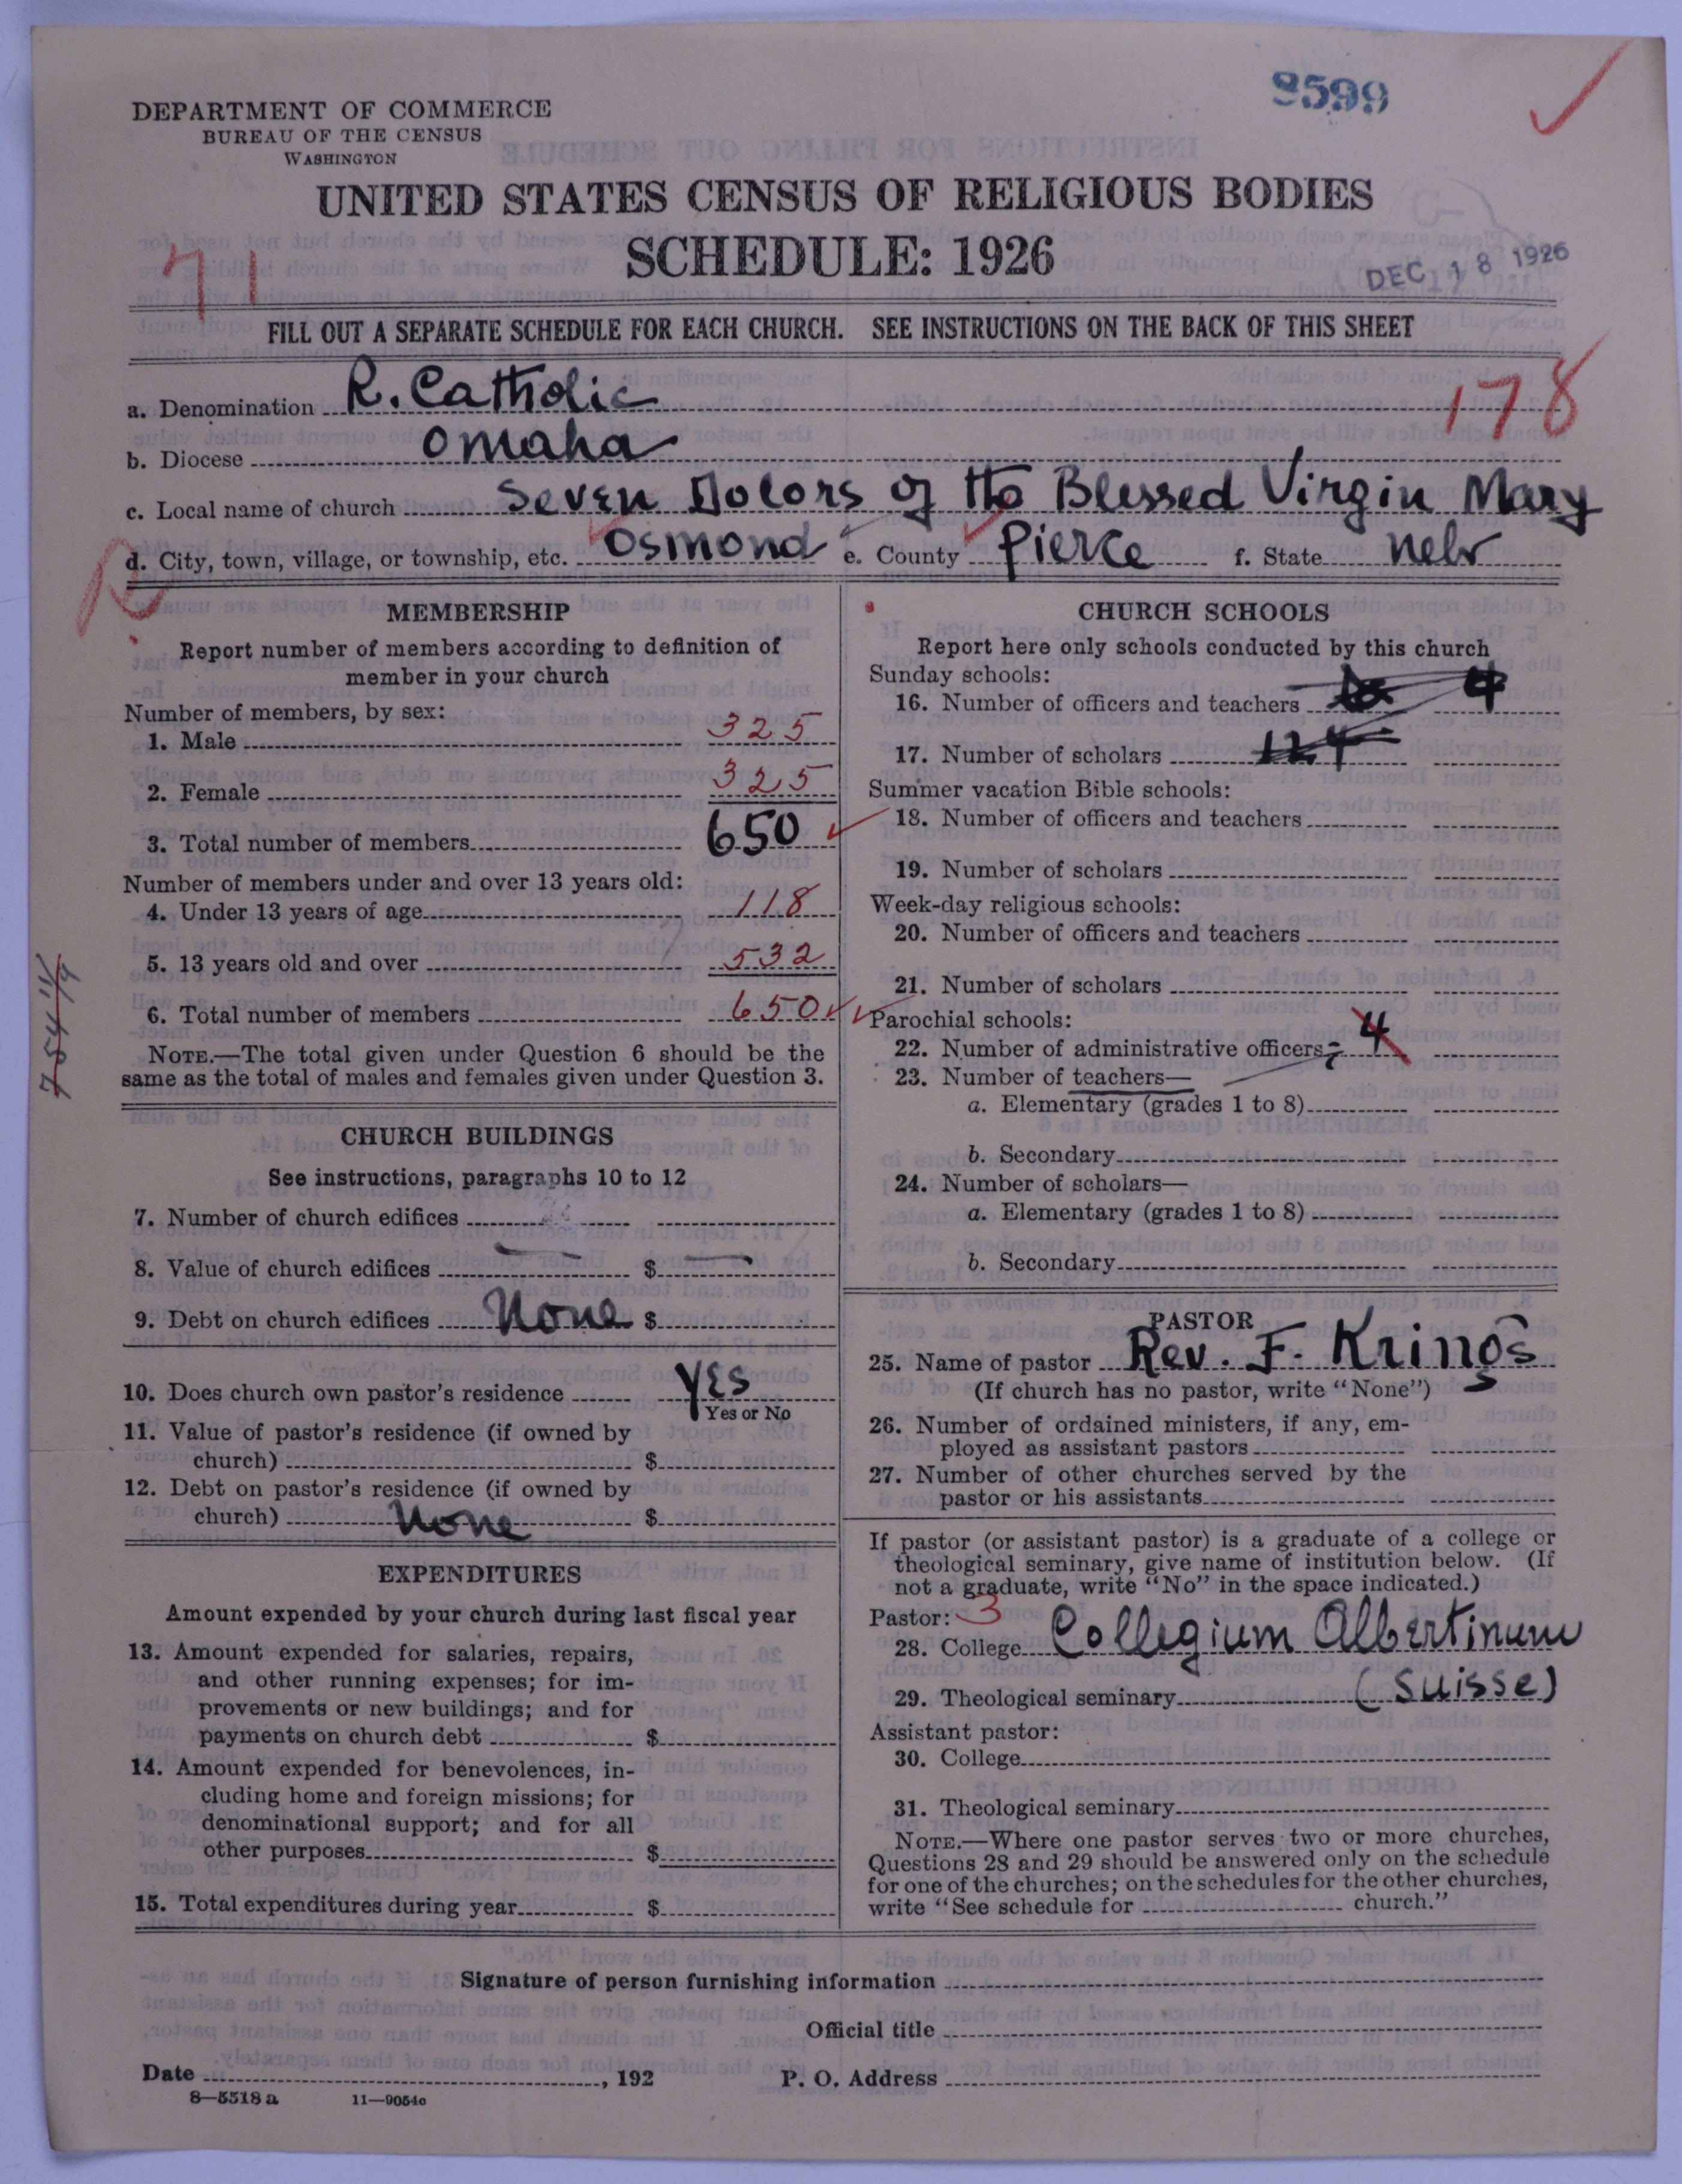 8599
DEPARTMENT OF COMMERCE
BUREAU OF THE CENSUS
WASHINGTON
UNITED STATES CENSUS OF RELIGIOUS BODIES
SCHEDULE: 1926
71
DEC 18 1926
FILL OUT A SEPARATE SCHEDULE FOR EACH CHURCH. SEE INSTRUCTIONS ON THE BACK OF THIS SHEET
178
a. Denomination R. Catholic
b. Diocese Omaha
c. Local name of church Seven Dolors of the Blessed Virgin Mary
d. City, town, village, or township, etc. Osmond e. County Pierce f. State Nebr
MEMBERSHIP
Report number of members according to definition of
member in your church
Number of members, by sex:
1. Male 325
2. Female 325
3. Total number of members 650
Number of members under and over 13 years old:
4. Under 13 years of age 118
5. 13 years old and over 532
6. Total number of members 650
NOTE.—The total given under Question 6 should be the
same as the total of males and females given under Question 3.
CHURCH BUILDINGS
See instructions, paragraphs 10 to 12
7. Number of church edifices
8. Value of church edifices $
9. Debt on church edifices None $
10. Does church own pastor's residence Yes
Yes or No
11. Value of pastor's residence (if owned by
church) $
12. Debt on pastor's residence (if owned by
church) None $
EXPENDITURES
Amount expended by your church during last fiscal year
13. Amount expended for salaries, repairs,
and other running expenses; for im-
provements or new buildings; and for
payments on church debt $
14. Amount expended for benevolences, in-
cluding home and foreign missions; for
denominational support; and for all
other purposes $
15. Total expenditures during year $
CHURCH SCHOOLS
Report here only schools conducted by this church
Sunday schools:
16. Number of officers and teachers 4
17. Number of scholars 124
Summer vacation Bible schools:
18. Number of officers and teachers
19. Number of scholars
Week-day religious schools:
20. Number of officers and teachers
21. Number of scholars
Parochial schools:
22. Number of administrative officers 4
23. Number of teachers—
a. Elementary (grades 1 to 8)
b. Secondary
24. Number of scholars—
a. Elementary (grades 1 to 8)
b. Secondary
PASTOR
25. Name of pastor Rev. F. Krings
(If church has no pastor, write "None")
26. Number of ordained ministers, if any, em-
ployed as assistant pastors
27. Number of other churches served by the
pastor or his assistants
If pastor (or assistant pastor) is a graduate of a college or
theological seminary, give name of institution below. (If
not a graduate, write "No" in the space indicated.)
Pastor: 3
28. College Collegium Albertinum
29. Theological seminary (Suisse)
Assistant pastor:
30. College
31. Theological seminary
NOTE.—Where one pastor serves two or more churches,
Questions 28 and 29 should be answered only on the schedule
for one of the churches; on the schedules for the other churches,
write "See schedule for church."
Signature of person furnishing information
Official title
Date , 192 P. O. Address
8—5518 a 11—9054c